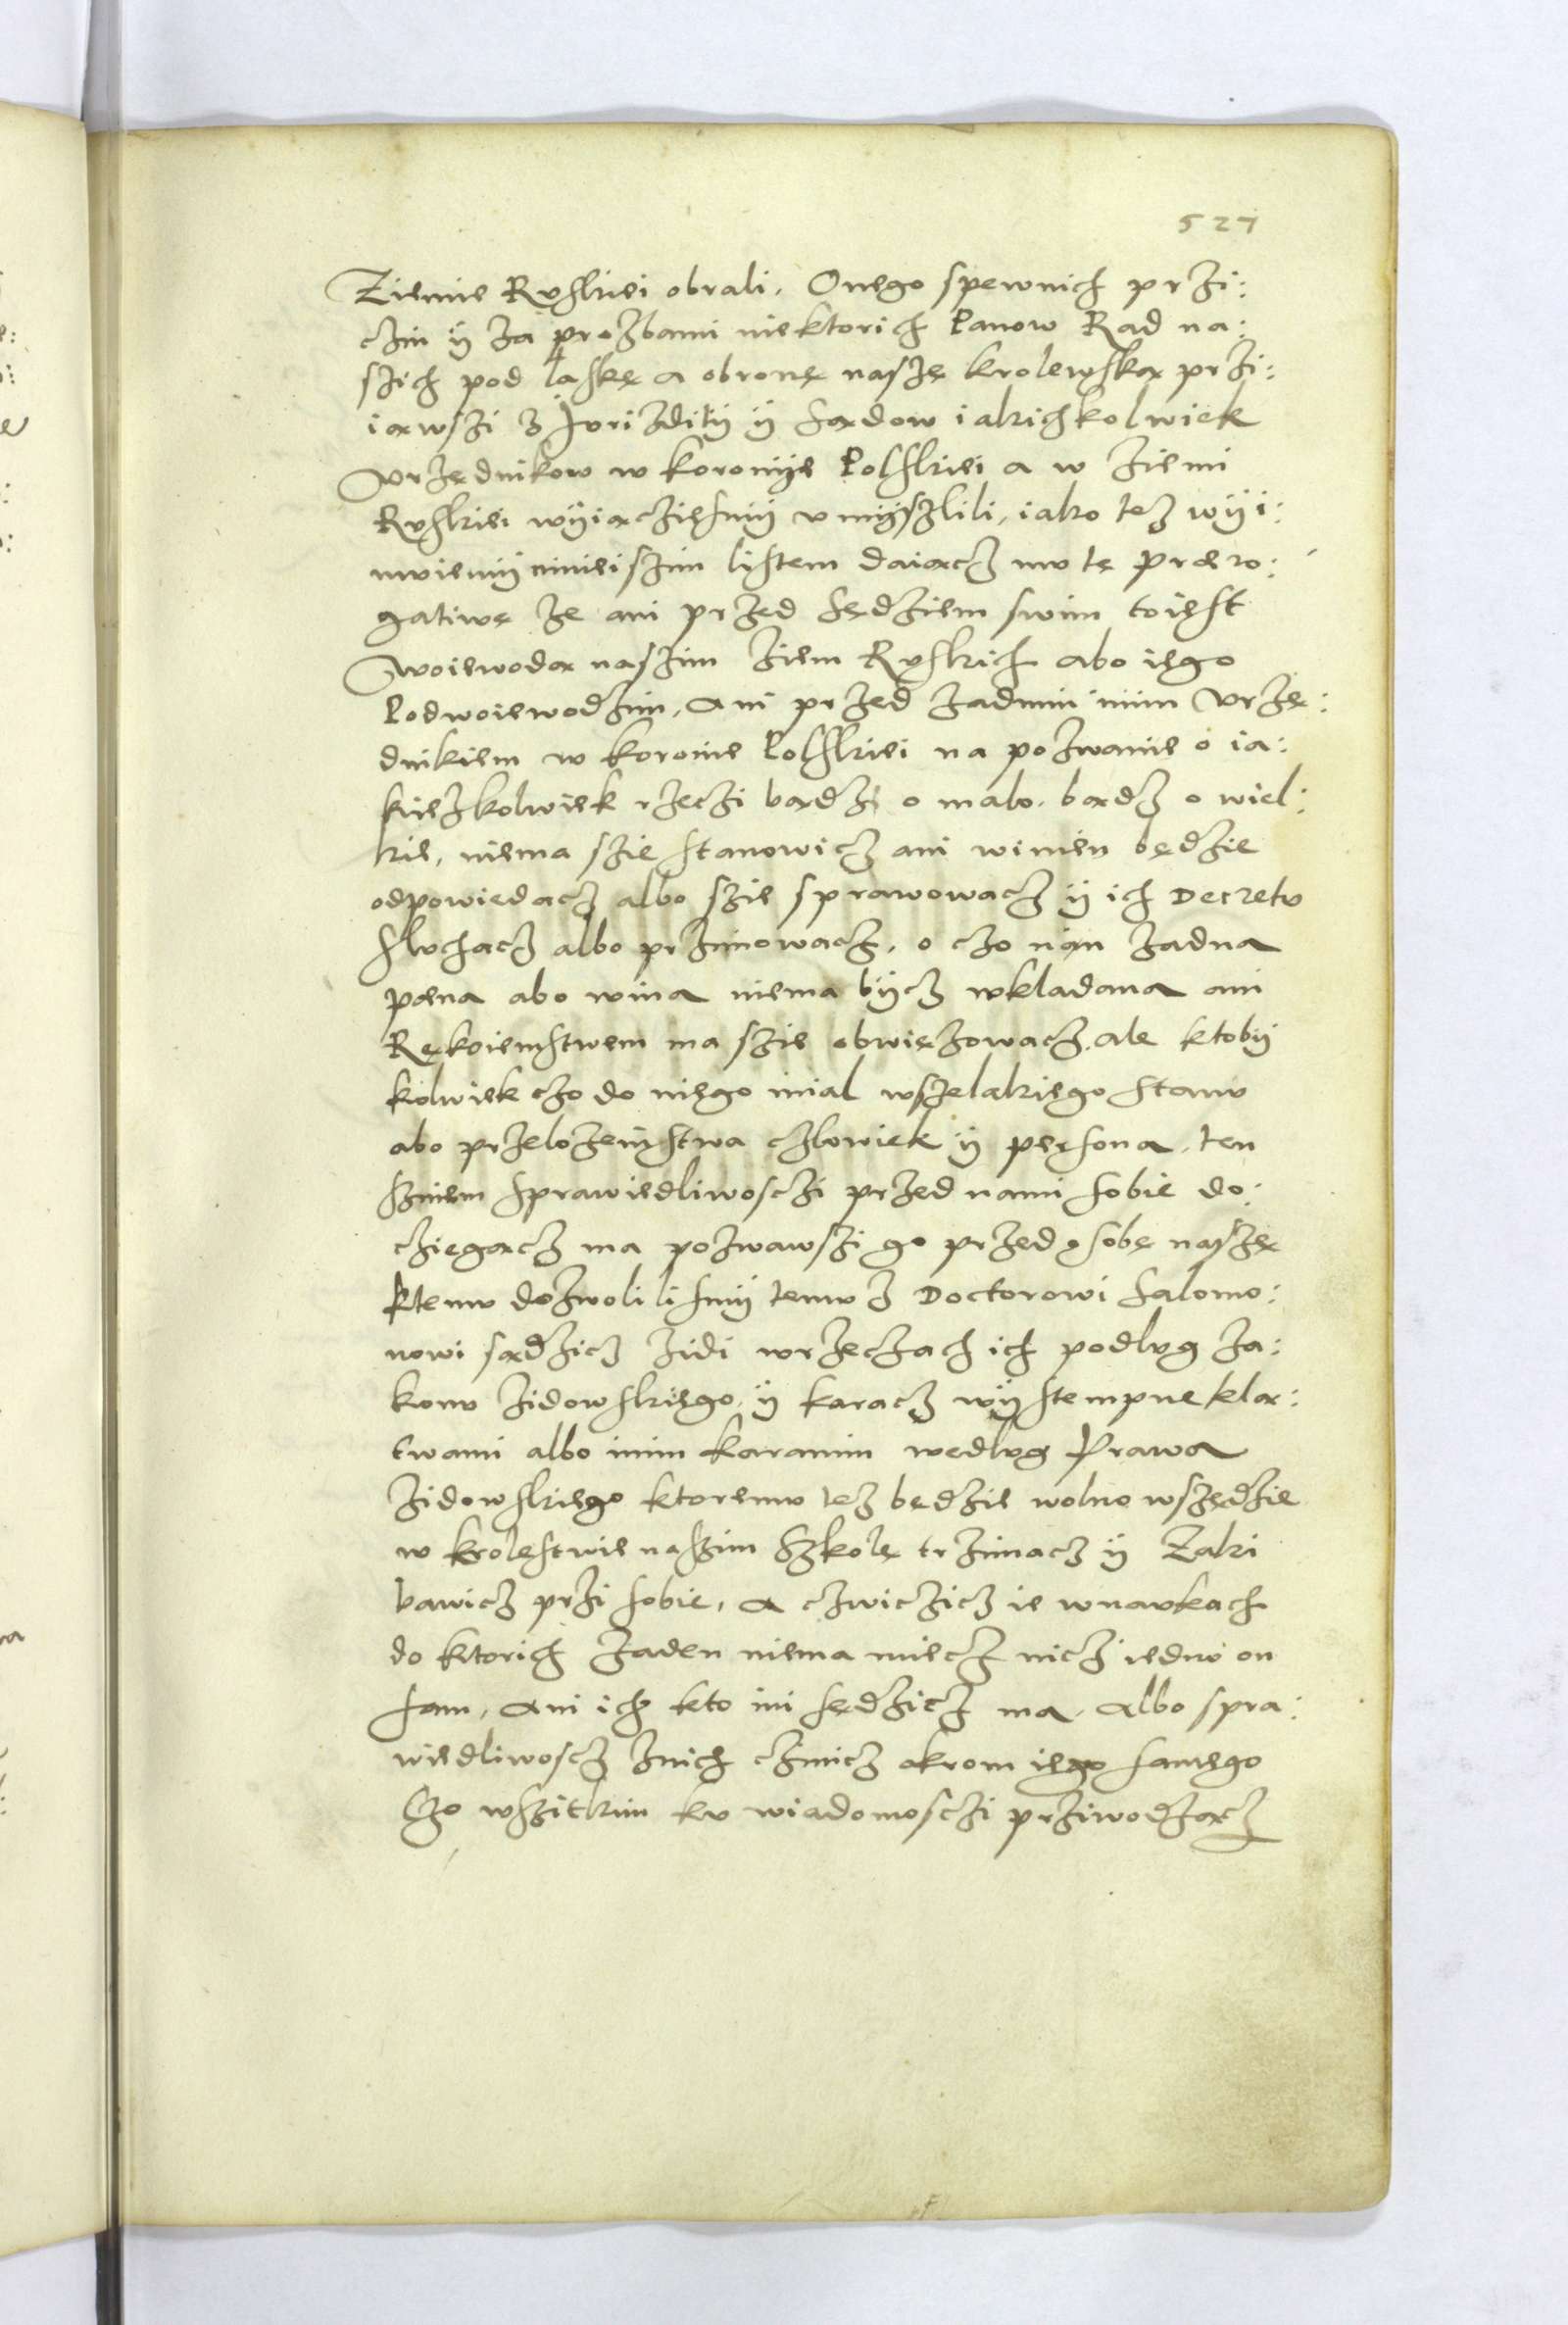 527
Ziemie Ruskiei obrali. Onego spewnich przi:
czin ÿ za prozbami niektorich Panow Rad na:
szich pod laskę a obronę naszę krolewską przi:
iąwszi z Jurizditÿ ÿ sądow iakichkolwiek
Vrzędnikow w koronÿe Polskiei a w ziemi
Ruskiei wÿiączilismÿ umÿszlili, iako tez wÿi:
muiemÿ ninieiszim listem daiącz mu tę præro:
gatiwę ze ani przed sędziem swim toiest
Woiewodą naszim ziem Ruskich abo iego
Podwoiewodzim, Ani przed zadnim inim Vrzę:
dnikiem w koronie Polskiei na pozwanie o ia:
kieżkolwiek rzeczi bądz o malo, bądz o wiel:
kie, niema szie stanowicz ani winien będzie
odpowiedacz albo szie sprawowacz ÿ ich Decretu
sluchacz albo przimowacz, o czo nan zadna
pæna abo wina niema bÿcz wkladana ani
Rękoiemstwem ma szie obwięzowacz. Ale ktobÿ
kolwiek czo do niego mial wszelakiego stanu
abo przelozenstwa czlowiek ÿ persona, ten
sznim sprawiedliwosczi przed nami sobie do:
cziegącz ma pozwawszi go przed osobę naszę
ktemu dozwolilismÿ temuz Doctorowi Salomo:
nowi sądzicz zidi wrzeczach ich podlug za:
konu zidowskiego, ÿ karacz wÿstempne klą:
twami albo inim karanim wedlug Prawa
zidowskiego ktoremu tez będzie wolno wszędzie
w krolestwie naszim szkolę trzimacz ÿ Zaki
bawicz przi sobie, A czwiczicz ie wnaukach
do ktorich zaden niema miecz nicz iedno on
sam, Ani ich kto ini sędzicz ma, Albo spra:
wiedliwoscz znich czinicz okrom iego samego
Czo wszitkim ku wiadomosczi prziwodzącz